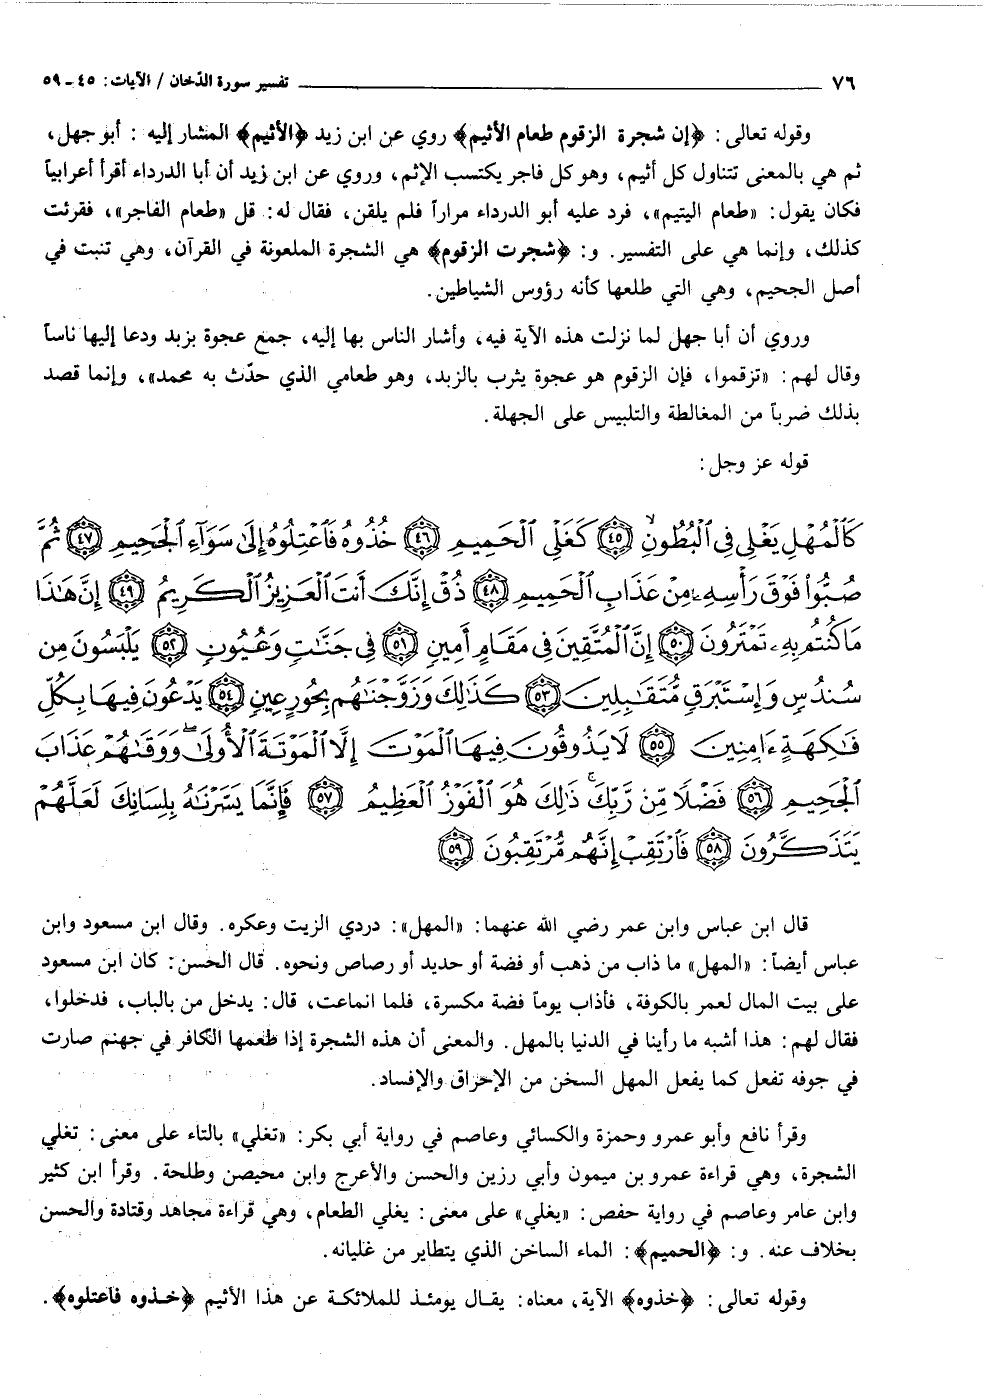 ٧٦ تفسير سورة الدّخان / الآيات: ٤٥ - ٥٩
وقوله تعالى: ﴿إن شجرة الزقوم طعام الأثيم﴾ روي عن ابن زيد ﴿الأثيم﴾ المشار إليه: أبو جهل،
ثم هي بالمعنى تتناول كل أثيم، وهو كل فاجر يكتسب الإثم، وروي عن ابن زيد أن أبا الدرداء أقرأ أعرابياً
فكان يقول: «طعام اليتيم»، فرد عليه أبو الدرداء مراراً فلم يلقن، فقال له: قل «طعام الفاجر»، فقرئت
كذلك، وإنما هي على التفسير. و: ﴿شجرت الزقوم﴾ هي الشجرة الملعونة في القرآن، وهي تنبت في
أصل الجحيم، وهي التي طلعها كأنه رؤوس الشياطين.
وروي أن أبا جهل لما نزلت هذه الآية فيه، وأشار الناس بها إليه، جمع عجوة بزبد ودعا إليها ناساً
وقال لهم: «تزقموا، فإن الزقوم هو عجوة يثرب بالزبد، وهو طعامي الذي حدّث به محمد»، وإنما قصد
بذلك ضرباً من المغالطة والتلبيس على الجهلة.
قوله عز وجل:
كَالْمُهْلِ يَغْلِي فِي الْبُطُونِ ﴿٤٥﴾ كَغَلْيِ الْحَمِيمِ ﴿٤٦﴾ خُذُوهُ فَاعْتِلُوهُ إِلَىٰ سَوَاءِ الْجَحِيمِ ﴿٤٧﴾ ثُمَّ
صُبُّوا فَوْقَ رَأْسِهِ مِنْ عَذَابِ الْحَمِيمِ ﴿٤٨﴾ ذُقْ إِنَّكَ أَنتَ الْعَزِيزُ الْكَرِيمُ ﴿٤٩﴾ إِنَّ هَٰذَا
مَا كُنتُم بِهِ تَمْتَرُونَ ﴿٥٠﴾ إِنَّ الْمُتَّقِينَ فِي مَقَامٍ أَمِينٍ ﴿٥١﴾ فِي جَنَّاتٍ وَعُيُونٍ ﴿٥٢﴾ يَلْبَسُونَ مِن
سُندُسٍ وَإِسْتَبْرَقٍ مُّتَقَابِلِينَ ﴿٥٣﴾ كَذَٰلِكَ وَزَوَّجْنَاهُم بِحُورٍ عِينٍ ﴿٥٤﴾ يَدْعُونَ فِيهَا بِكُلِّ
فَاكِهَةٍ ءَامِنِينَ ﴿٥٥﴾ لَا يَذُوقُونَ فِيهَا الْمَوْتَ إِلَّا الْمَوْتَةَ الْأُولَىٰ ۖ وَوَقَاهُمْ عَذَابَ
الْجَحِيمِ ﴿٥٦﴾ فَضْلًا مِّن رَّبِّكَ ۚ ذَٰلِكَ هُوَ الْفَوْزُ الْعَظِيمُ ﴿٥٧﴾ فَإِنَّمَا يَسَّرْنَاهُ بِلِسَانِكَ لَعَلَّهُمْ
يَتَذَكَّرُونَ ﴿٥٨﴾ فَارْتَقِبْ إِنَّهُم مُّرْتَقِبُونَ ﴿٥٩﴾
قال ابن عباس وابن عمر رضي الله عنهما: «المهل»: دردي الزيت وعكره. وقال ابن مسعود وابن
عباس أيضاً: «المهل» ما ذاب من ذهب أو فضة أو حديد أو رصاص ونحوه. قال الحسن: كان ابن مسعود
على بيت المال لعمر بالكوفة، فأذاب يوماً فضة مكسرة، فلما انماعت، قال: يدخل من بالباب، فدخلوا،
فقال لهم: هذا أشبه ما رأينا في الدنيا بالمهل. والمعنى أن هذه الشجرة إذا طعمها الكافر في جهنم صارت
في جوفه تفعل كما يفعل المهل السخن من الإحراق والإفساد.
وقرأ نافع وأبو عمرو وحمزة والكسائي وعاصم في رواية أبي بكر: «تغلي» بالتاء على معنى: تغلي
الشجرة، وهي قراءة عمرو بن ميمون وأبي رزين والحسن والأعرج وابن محيصن وطلحة. وقرأ ابن كثير
وابن عامر وعاصم في رواية حفص: «يغلي» على معنى: يغلي الطعام، وهي قراءة مجاهد وقتادة والحسن
بخلاف عنه. و: ﴿الحميم﴾: الماء الساخن الذي يتطاير من غليانه.
وقوله تعالى: ﴿خذوه﴾ الآية، معناه: يقال يومئذ للملائكة عن هذا الأثيم ﴿خذوه فاعتلوه﴾.